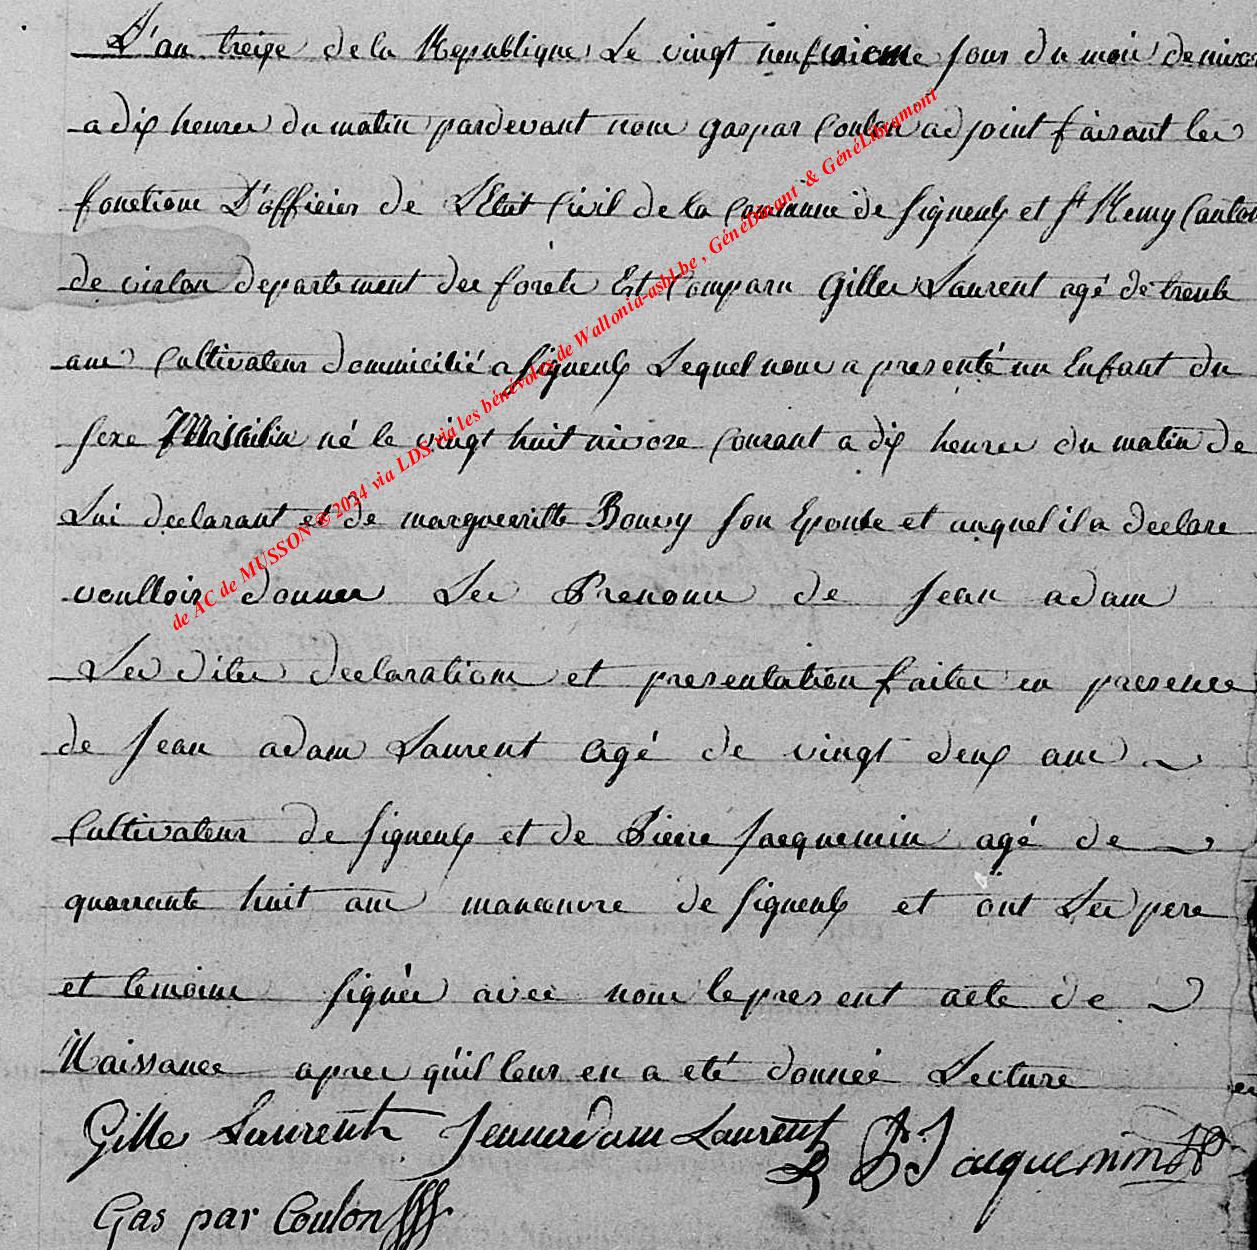 L'an treize de la Republique Le vingt neufvieme jour du mois de nivo
a dix heures du matin pardevant nous gaspar Coulon adjoint faisant les
fonctions D'officier de L'Etat Civil de la Commune de signeulx et St Remy Canton
de virton departement des forets Est Comparu Gilles Laurent agé de trente
ans Cultivateur domicilié a signeulx Lequel nous a presenté un Enfant du
sexe Masculin né le vingt huit nivose Courant a dix heures du matin de
Lui declarant et de margueritte Bouvy son Epouse et auquel il a declare
voulloir donner Les Prenoms de Jean adam
Les dites declarations et presentation faites en presence
de Jean adam Laurent agé de vingt deux ans
Cultivateur de signeulx et de Pierre Jacquemin agé de
quarante huit ans manoeuvre de signeulx et ont Les pere
et temoins signés avec nous le present acte de
Naissance apres qu'il leur en a eté donnée Lecture
Gille Laurent Jean adam Laurent P J acquemin
Gas par Coulon
de AC de MUSSON © 2024 via LDS via les bénévoles de Wallonia-asbl.be , GénéDinant & GénéLibramont